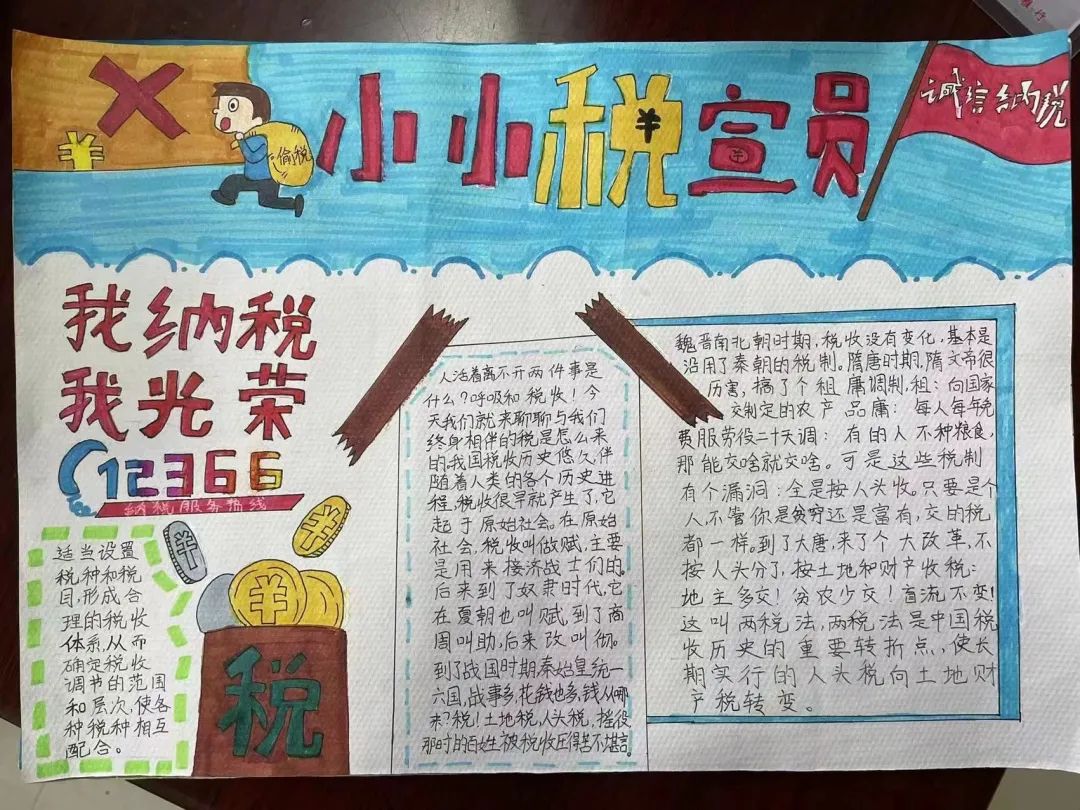 小小税宣员
诚信纳税
偷税
我纳税
我光荣
12366
纳税服务热线
适当设置
税种和税
目,形成合
理的税收
体系,从而
确定税收
调节的范围
和层次,使各
种税种相互
配合。
税
人活着离不开两件事是
什么?呼吸和税收!今
天我们就来聊聊与我们
终身相伴的税是怎么来
的我国税收历史悠久伴
随着人类的各个历史进
程,税收很早就产生了,它
起于原始社会。在原始
社会,税收叫做赋,主要
是用来接济战士们的。
后来到了奴隶时代,它
在夏朝也叫赋,到了商
周叫助,后来改叫彻。
到了战国时期秦始皇统一
六国,战事多,花钱也多,钱从哪
来?税!土地税,人头税,摇役
那时的百姓被税收压得苦不堪言。
魏晋南北朝时期,税收没有变化,基本是
沿用了秦朝的税制。隋唐时期,隋文帝很
厉害,搞了个租庸调制,租:向国家
交制定的农产品庸:每人每年免
费服劳役二十天调:有的人不种粮食,
那能交啥就交啥。可是这些税制
有个漏洞:全是按人头收。只要是个
人,不管你是贫穷还是富有,交的税
都一样。到了大唐,来了个大改革,不
按人头分了,按土地和财产收税:
地主多交!贫农少交!盲流不变!
这叫两税法,两税法是中国税
收历史的重要转折点,使长
期实行的人头税向土地财
产税转变。